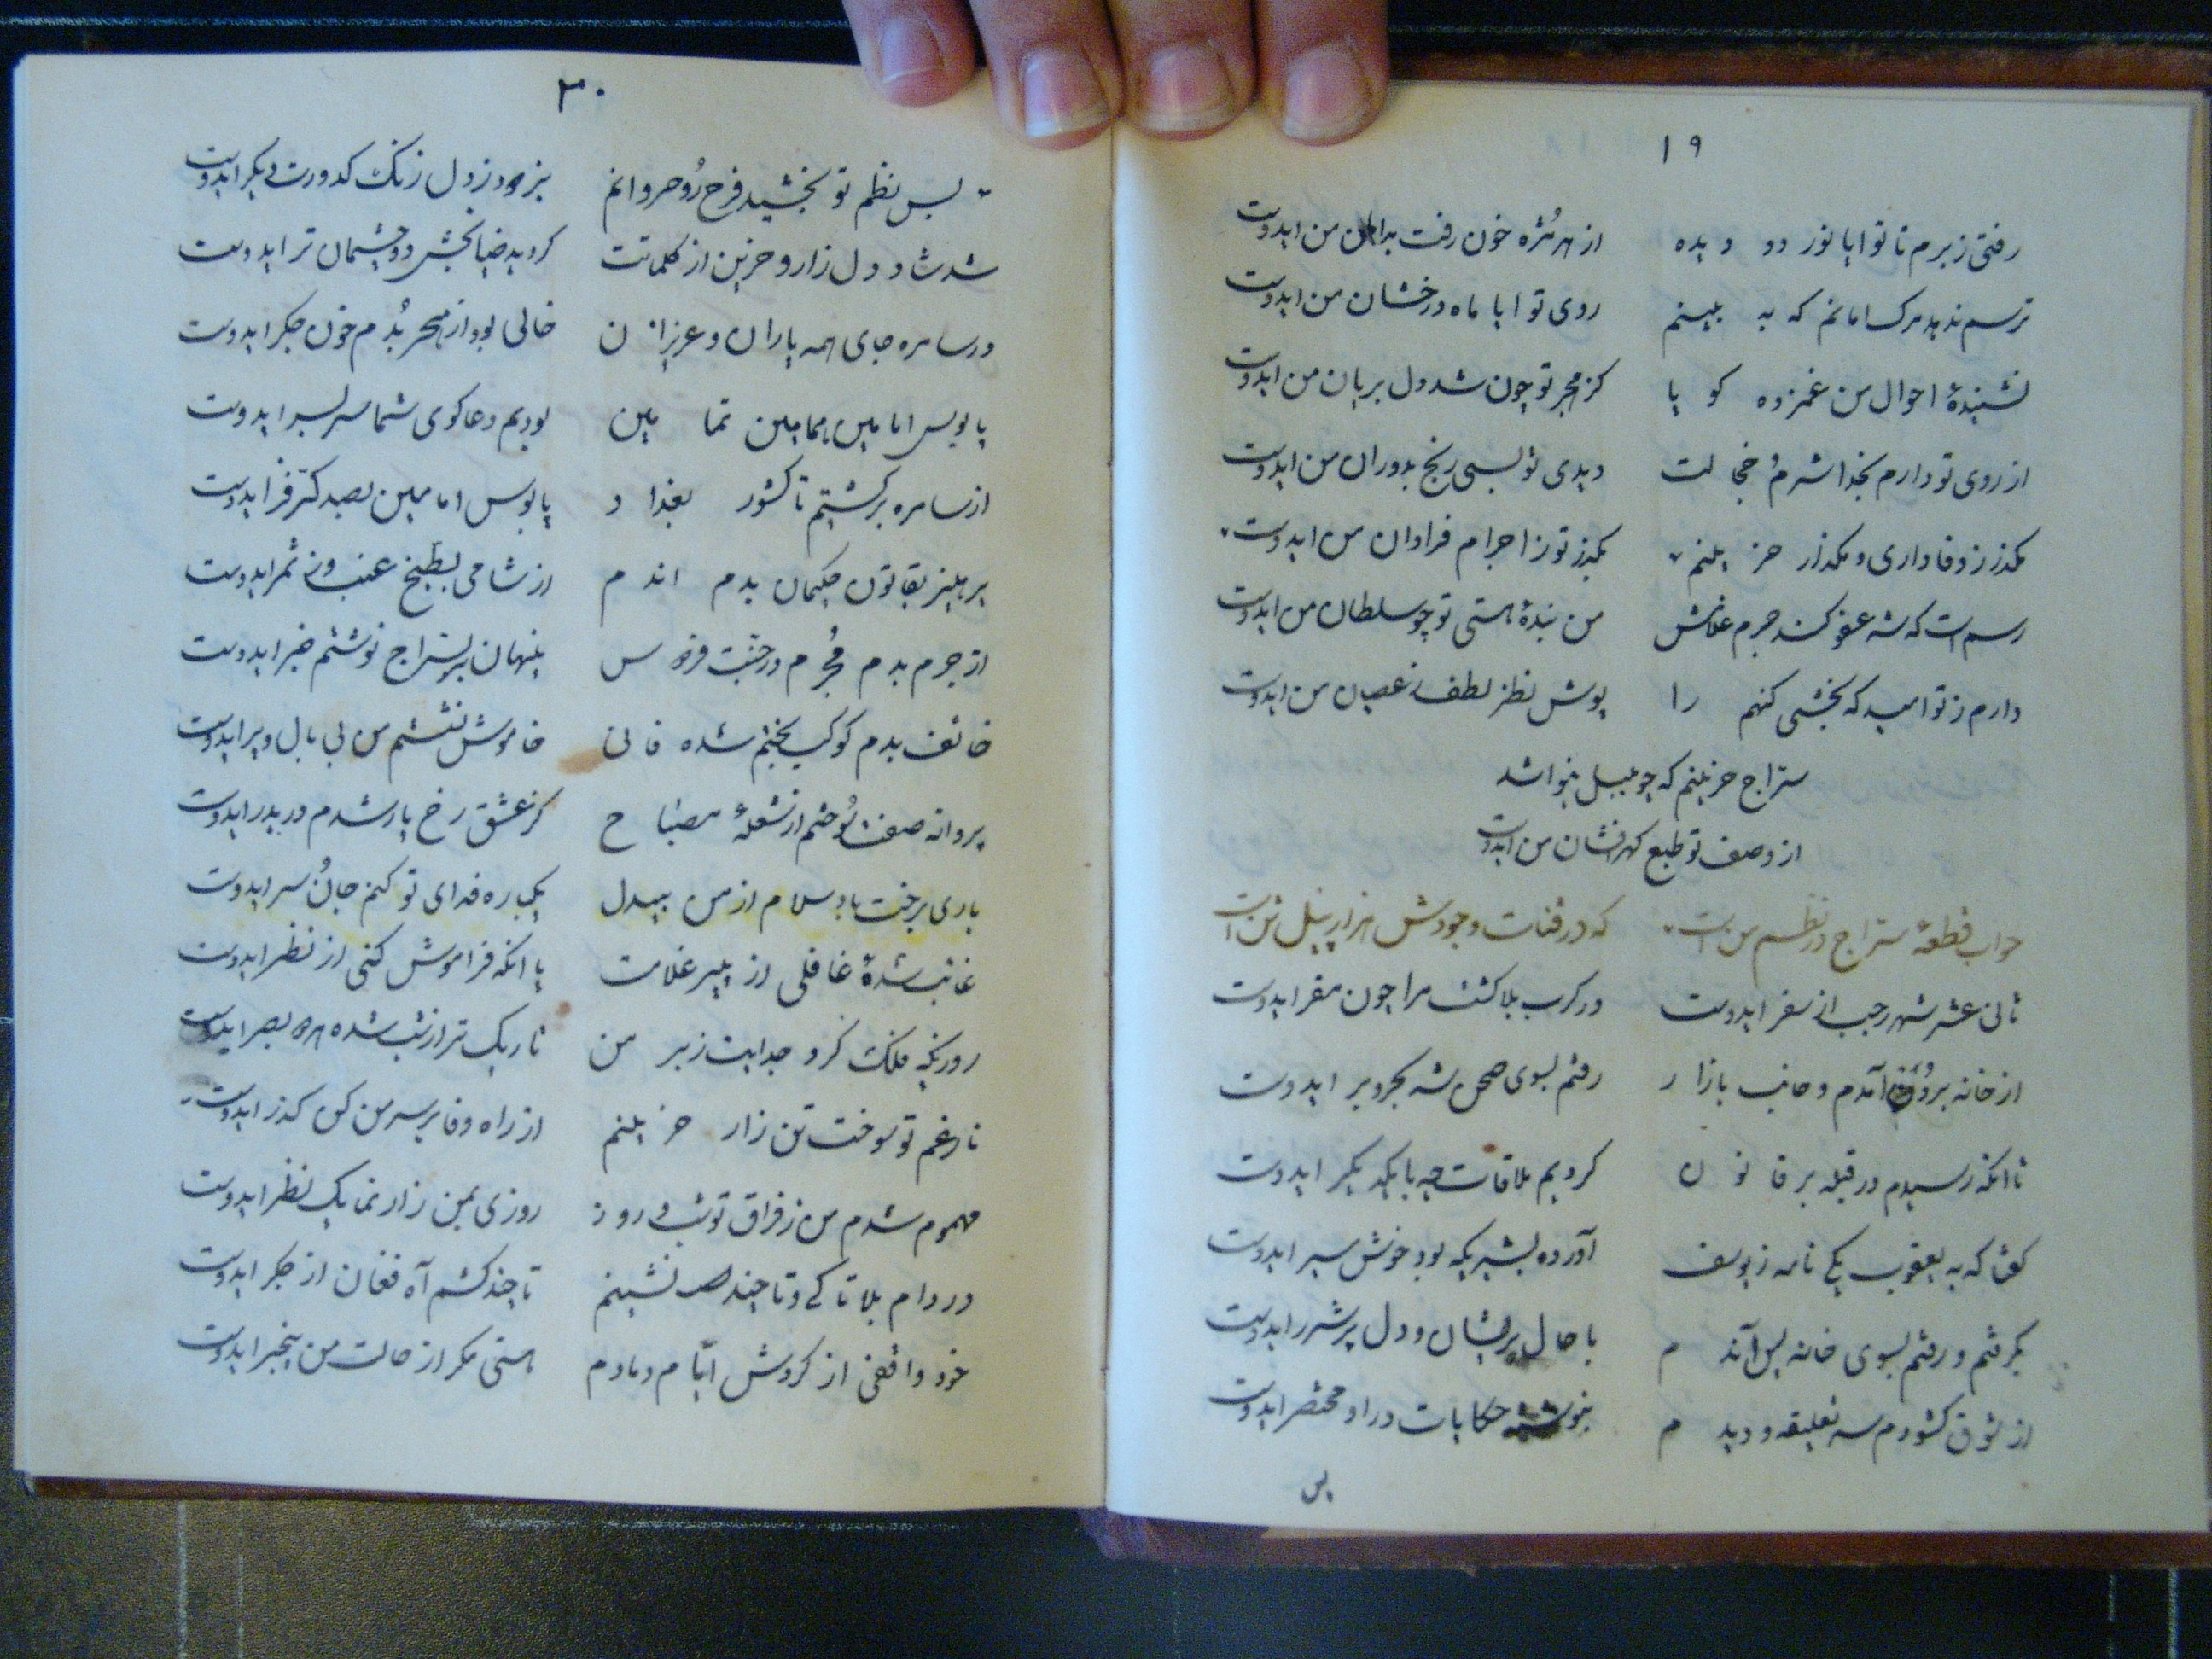 ۱۹
رفتی ز برم تا تو ایا نور دو دیده از هر مژه خون رفت بدامان من ایدوست
ترسم ندهد مرک امانم که به بینم روی تو ایا ماه درخشان من ایدوست
نشنیدهٔ احوال من غمزده کویا کز هجر تو چون شد دل بریان من ایدوست
از روی تو دارم بخدا شرم و خجالت دیدی تو بسی رنج بدوران من ایدوست
مکذر ز وفاداری و مکذار حزینم بکذر تو ز اجرام فراوان من ایدوست
رسم است که شه عفو کند جرم غلامش من بندهٔ هستی تو چو سلطان من ایدوست
دارم ز تو امید که بخشی کنهم را پوش نظر لطف ز عصیان من ایدوست
سراج حزینم که چو بلبل بنوا شد
از وصف تو طبع کهرافشان من ایدوست
جواب قطعهٔ سراج در نظم من است که در قنات وجودش هزار پیل تن است
ثانی عشر شهر رجب از سفر ایدوست در کرب بلا کشت مرا چون مقر ایدوست
از خانه برون آمدم و جانب بازار رفتم بسوی صحن شه بحر و بر ایدوست
تا انکه رسیدم در قبله بر قانون کردیم ملاقات چه با یکدیکر ایدوست
کفتا که به یعقوب یکی نامه ز یوسف آورده بشیریکه بود خوش سیر ایدوست
بکرفتم و رفتم بسوی خانه پس آندم با حال پریشان و دل پر شرر ایدوست
از شوق کشودم سر تعلیقه و دیدم بنوشته حکایات در او مختصر ایدوست
پس
۳۰
پس نظم تو بخشید فرح روح روانم بزدود ز دل زنک کدورت دیکر ایدوست
شد شاد دل زار و حزین از کلماتت کردید ضیابخش دو چشمان تر ایدوست
در سامره جای همه یاران و عزیزان خالی بود از هجر بدم خون جکر ایدوست
پابوس امامین همامین تمامین بودیم دعاکوی شما سربسر ایدوست
از سامره برکشتیم تا کشور بغداد پابوس امامین بصد کر و فر ایدوست
پرهیز بقانون حکیمان بدم اندم از شامی بطیخ عنب وز ثمر ایدوست
از جرم بدم مجرم در جنت فردوس پنهان بر سراج نوشتم خبر ایدوست
خائف بدم کوکب بختم شده فانی خاموش نشستم من بی بال و پر ایدوست
پروانه صفت سوختم از شعلهٔ مصباح کز عشق رخ یار شدم دربدر ایدوست
باری برخت باد سلام از من بیدل یکباره فدای تو کنم جان و سر ایدوست
غائب شدهٔ غافلی از پیر غلامت یا انکه فراموش کنی از نظر ایدوست
روزیکه فلک کرد جدایت ز بر من تاریک تر از شب شده بصر ایدوست
نار غم تو سوخت تن زار حزینم از راه وفا بر سر من کن کذر ایدوست
مهموم شدم من ز فراق تو شب و روز روزی بمن زار نما یک نظر ایدوست
در دام بلا تا کے و تا چند نشینم تا چند کشم آه فغان از جکر ایدوست
خود واقفی از کردش ایام دمادم هستی مکر از حالت من بیخبر ایدوست